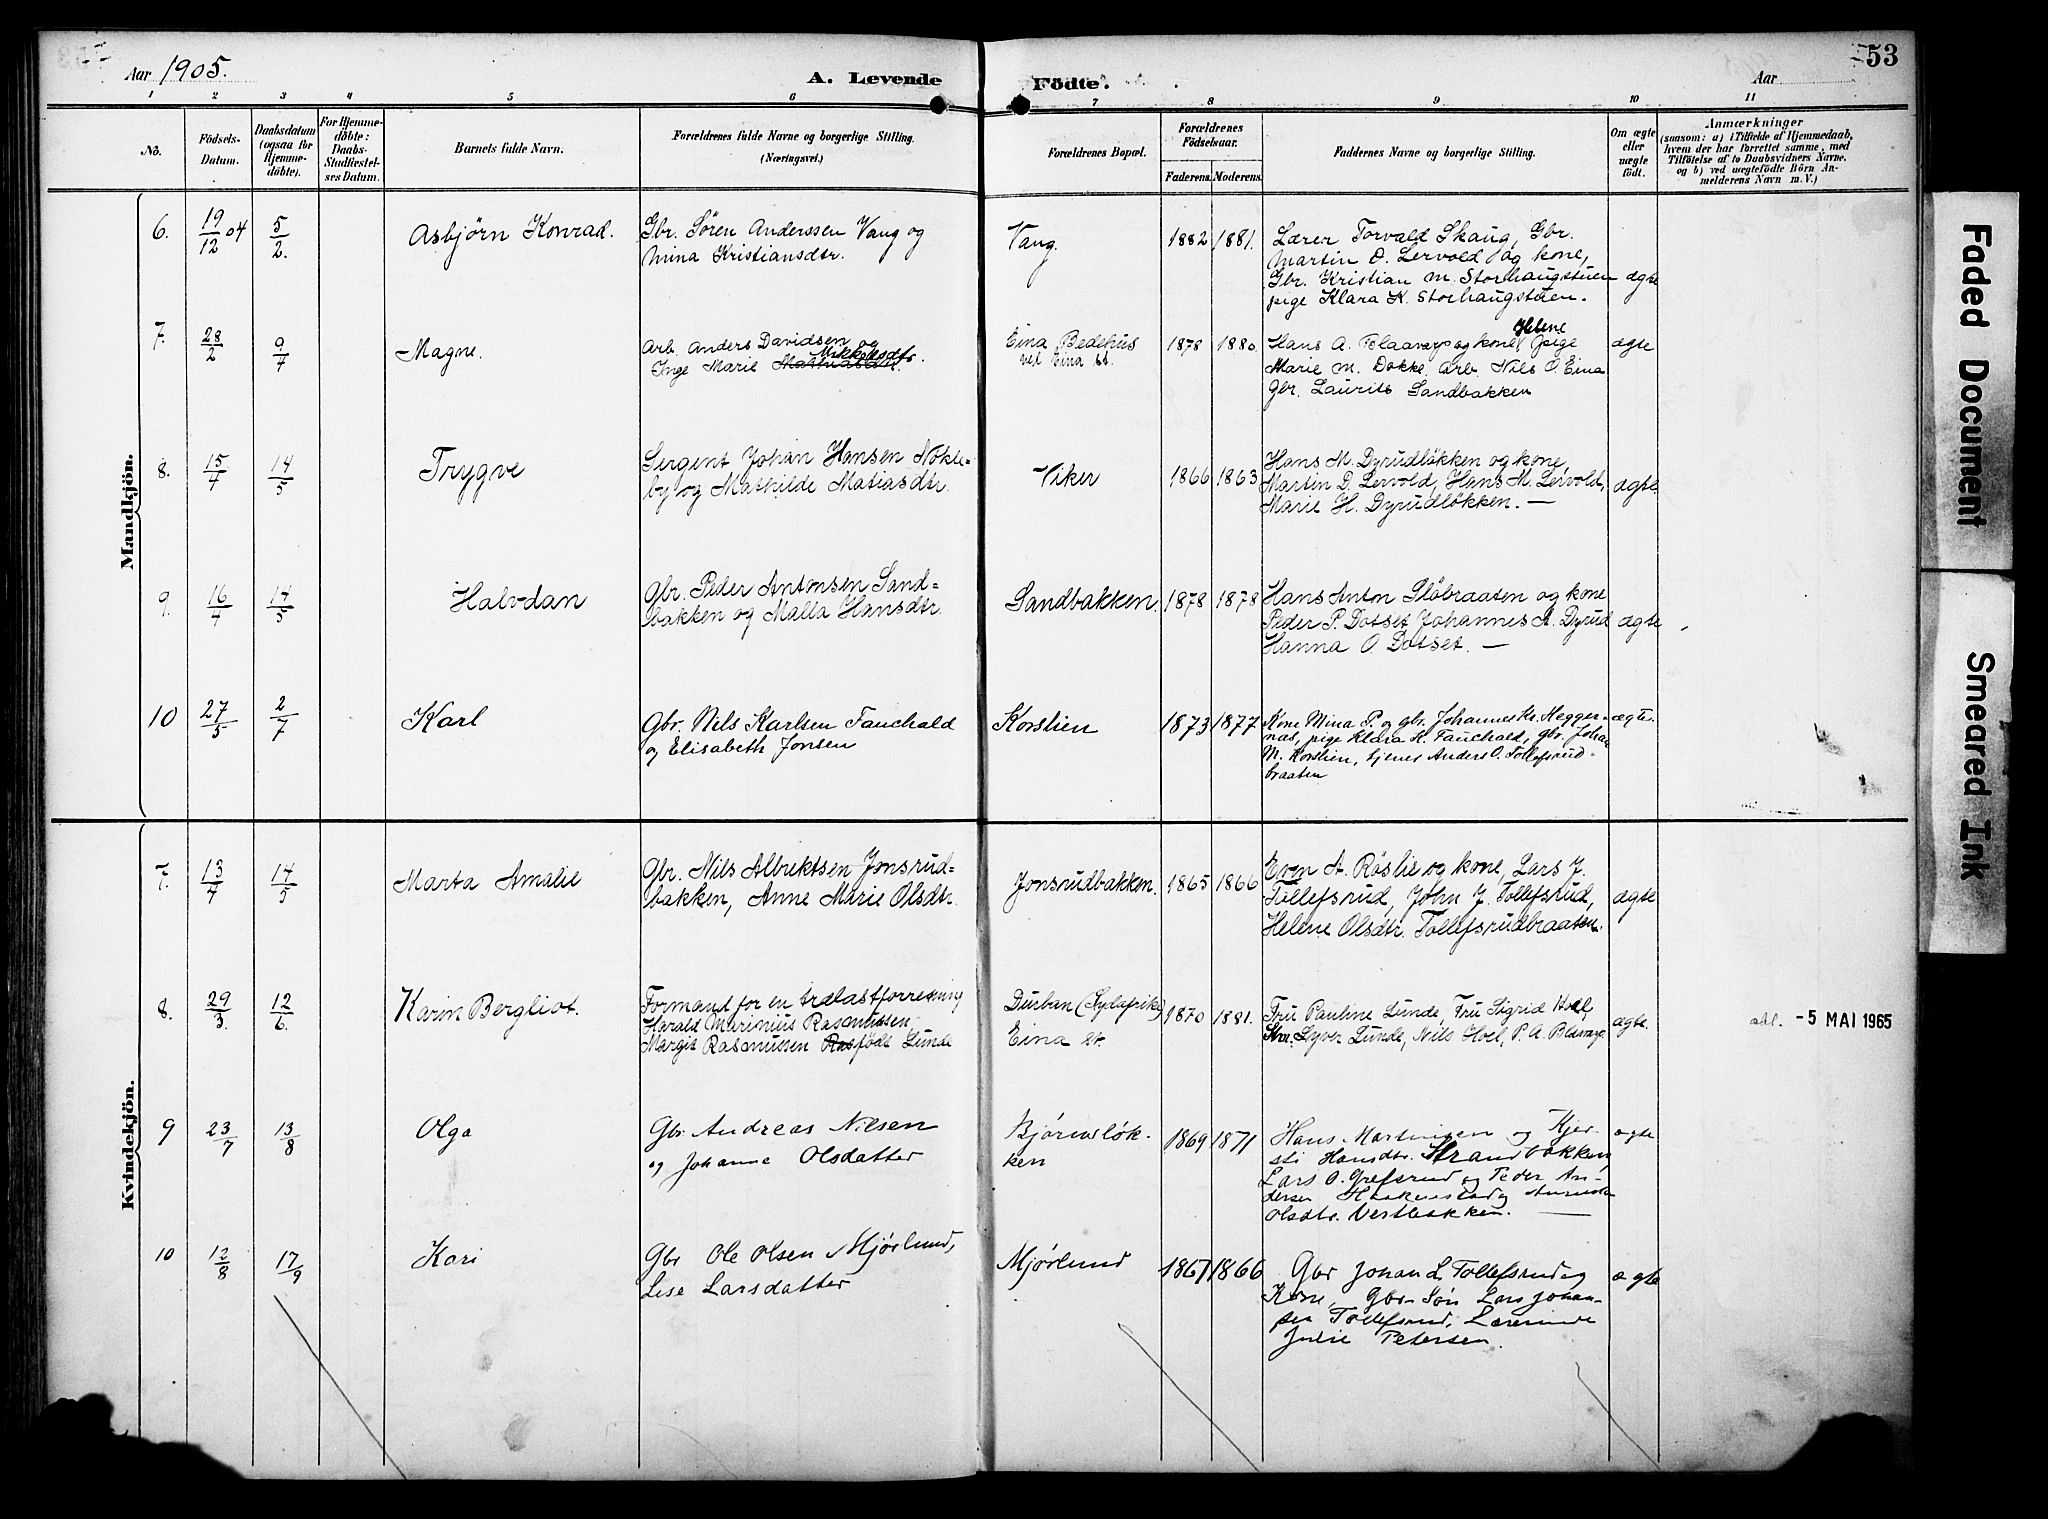 Aar 1905.
A. Levende
Födte.
Aar
53
1 2 3 4 5 6 7 8 9 10 11
No.
Födsels-Datum.
Daabsdatum (ogsaa for Hjemmedöbte).
For Hjemmedöbte: Daabs-Stadfæstelses Datum.
Barnets fulde Navn.
Forældrenes fulde Navne og borgerlige Stilling.
(Næringsvei.)
Forældrenes Bopæl.
Forældrenes Födselsaar.
Faderens. Moderens.
Faddernes Navne og borgerlige Stilling.
Om ægte eller uægte födt.
Anmærkninger
(saasom: a) i Tilfælde af Hjemmedaab, hvem der har forrettet samme, med Tilföielse af to Daabsvidners Navne, og b) ved uægtefödte Börn Anmelderens Navn m.V.)
Mandkjön.
6. 19/12 04 5/2. Asbjørn Konrad. Gbr. Søren Anderssen Vang og
Mina Kristiansdtr.
Vang. 1882 1881.
Lærer Torvald Skaug, Gbr.
Martin D. Lervold og kone,
Gbr. Kristian M. Storhaugstuen
pige Klara K. Storhaugstuen.
ægte
7. 28/2 9/4 Magne.
Arb. Anders Davidsen og
Inge Marie Mikkelsdtr.
Eina Bedehus
ved Eina st.
1878 1880.
Hans A. Blaavarp og kone Helene, pige
Marie M. Dokke. Arb. Nils O. Eina
Gbr. Laurits Sandbakken
ægte
8. 15/4 14/5 Trygve
Sergent Johan Hansen Nøkle=
by og Mathilde Matiasdtr.
Viker 1866 1863
Hans M. Dyrudløkken og kone,
Martin D. Lervold, Hans M. Lervold,
Marie H. Dyrudløkken. —
ægte.
9. 16/4 14/5 Halvdan
Gbr. Peder Antonsen Sand=
bakken og Malla Hansdtr.
Sandbakken. 1878 1878
Hans Anton Fløbraaten og kone
Peder P. Dotset Johannes A. Dyrud
Hanna O. Dotset. —
ægte
10 27/5 2/7 Karl
Gbr. Nels Karlsen Fauchald
og Elisabeth Jonsen
Korslien 1873 1877
Kone Mina P. og gbr. Johannes Kr. Hegger-
næs, pige Klara K. Fauchald, gbr. Johan
M. Korslien, tjener Anders O. Tollefsrud-
braaten
ægte.
Kvindekjön.
7. 13/4 14/5 Marta Amalie
Gbr. Nils Albrektsen Jonsrud-
bakken, Anne Marie Olsdtr.
Jonsrudbakken. 1865 1866
Even A. Røslie og kone, Lars J.
Tollefsrud, John J. Tollefsrud,
Helene Olsdtr. Tollefsrudbraaten.
ægte
8. 29/3. 12/6. Karin Bergliot.
Formand for en trælastforretning
Harald Marinius Rasmussen
Margit Rasmussen født Lunde
Durban (Sydafrika)
Eina st.
1870 1881.
Fru Pauline Lunde, Fru Sigrid Hoel,
Syver Lunde, Nils Hoel, P. A. Blaavarp.
ægte.
- 5 MAI 1965
9 23/7 13/8 Olga
Gbr. Andreas Nilsen
og Johanne Olsdatter
Bjørnsløk-
ken
1869 1871
Hans Martinsen og Kjer-
sti Hansdtr. Strandbakken,
Lars O. Grefsrud og Peder An-
dersen
Olsdtr. Vestbakken. —
ægte
10 12/8 17/9 Kari
Gbr Ole Olsen Mjørlund,
Lise Larsdatter
Mjørlund 1867 1866
Gbr Johan L. Tollefsrud og
Kone, Gbr. Søn Lars Johan-
sen Tollefsrud, Lærerinde
Julie Petersen.
ægte
Faded Document
Smeared Ink